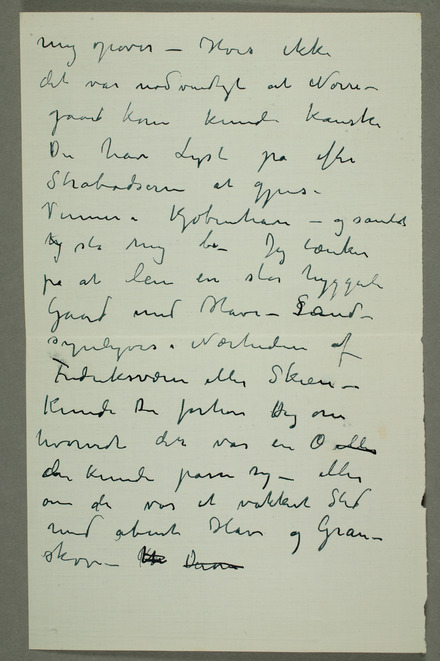 mig opover – Hvis ikke
det var nødvendigt at Nørre–
gaard kom kunde kanske
Du have Lyst på efter
Strabadserne at gjense
Venner i Kjøbenhavn – og samtidig
stå mig bi – Jeg tænker
på at leie en stor hyggelig
Gaard med Have – Sand–
synligvis i Nærheden af
Fredriksværn eller Skien –
Kunde Du forhøre Dig om
hvorvidt der var en Ø eller
der kunde passe sig – eller
om der var et vakkert Sted
med åbent Hav og Gran–
skov –